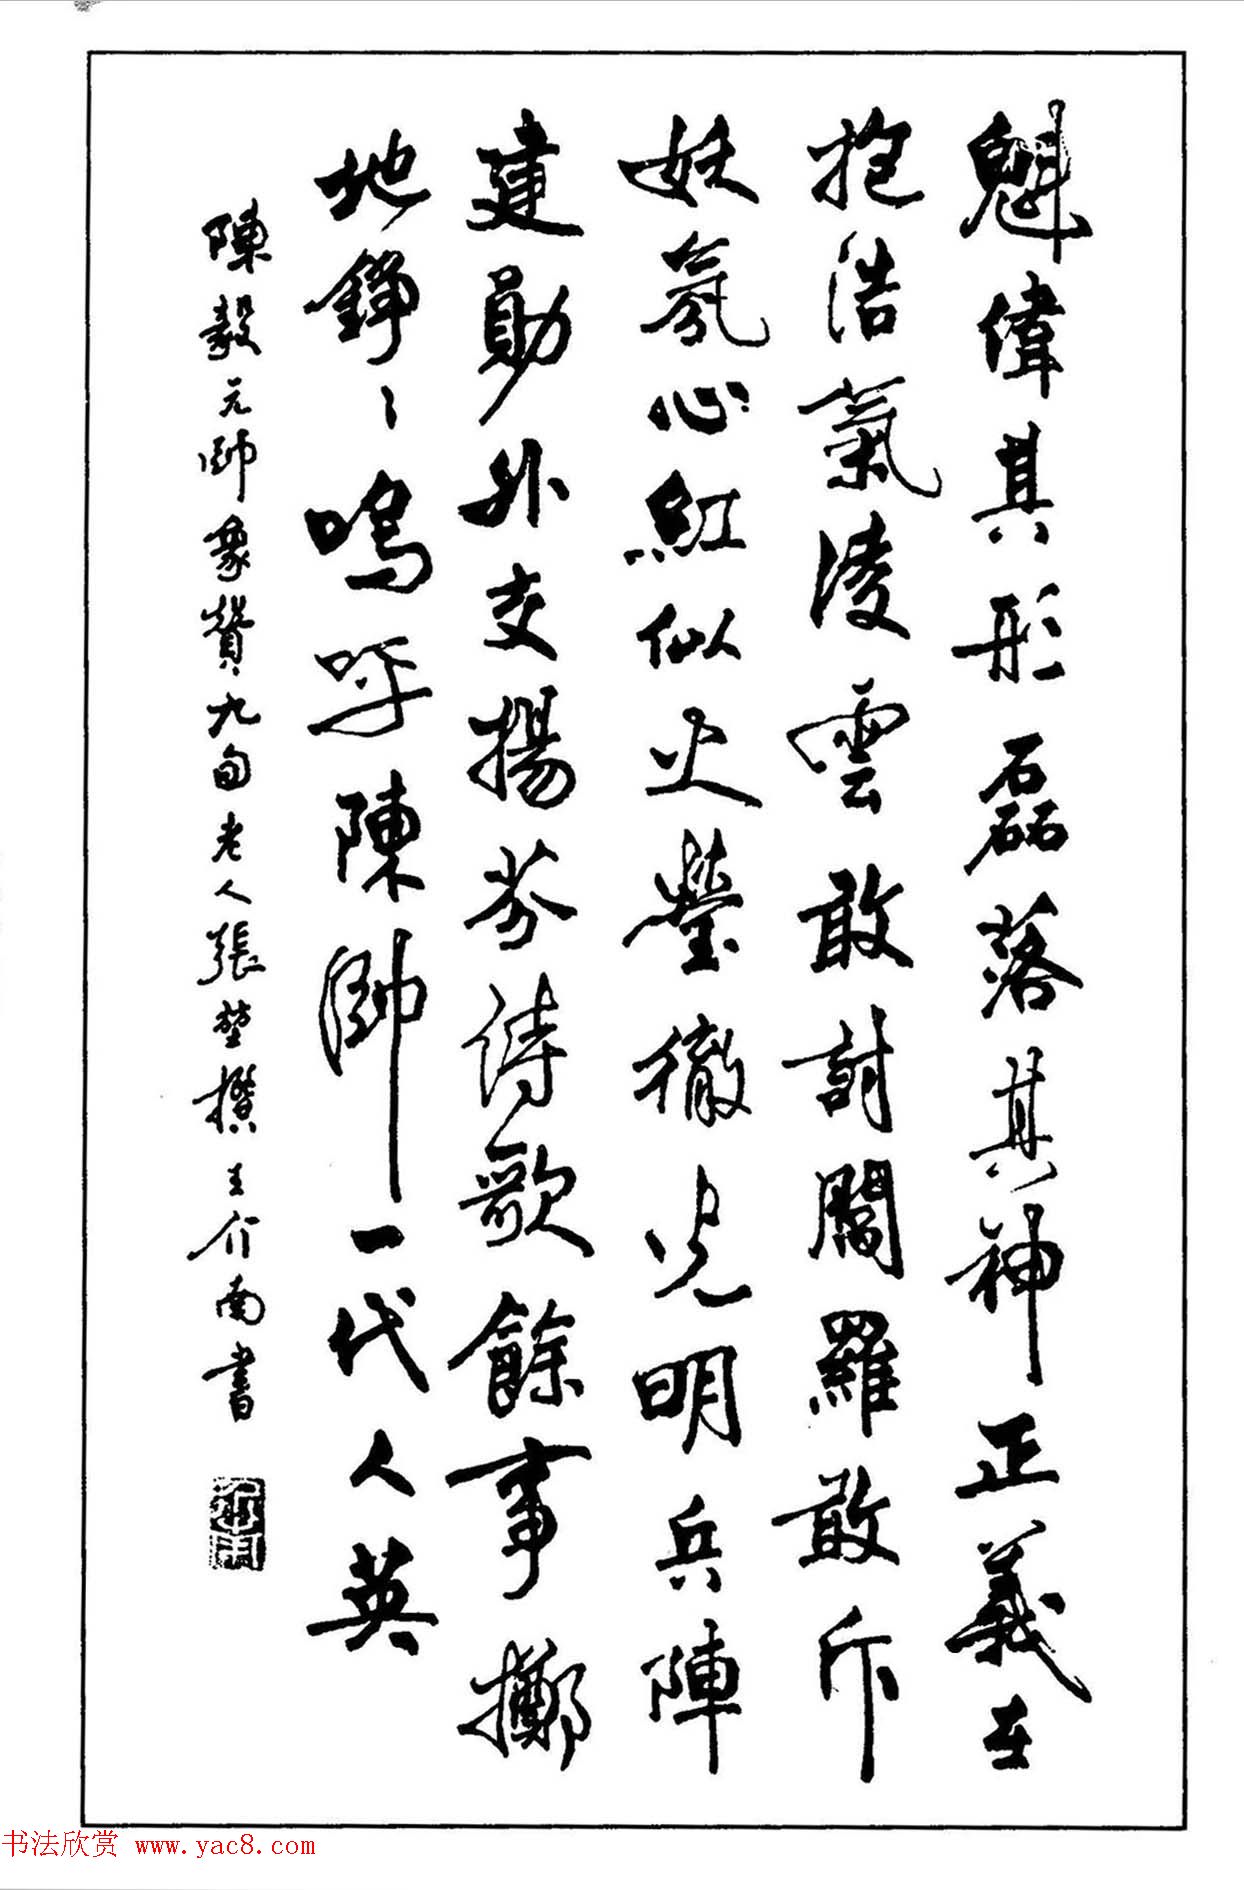 魁偉其形磊落其神正義在
抱浩氣淩雲敢討閻羅敢斥
妖氛心紅似火瑩徹光明兵陣
建勛外交揚芬詩歌餘事擲
地錚〻嗚呼陳帥一代人英
陳毅元帥象贊九旬老人張堃撰王介南書
书法欣赏 www.yac8.com